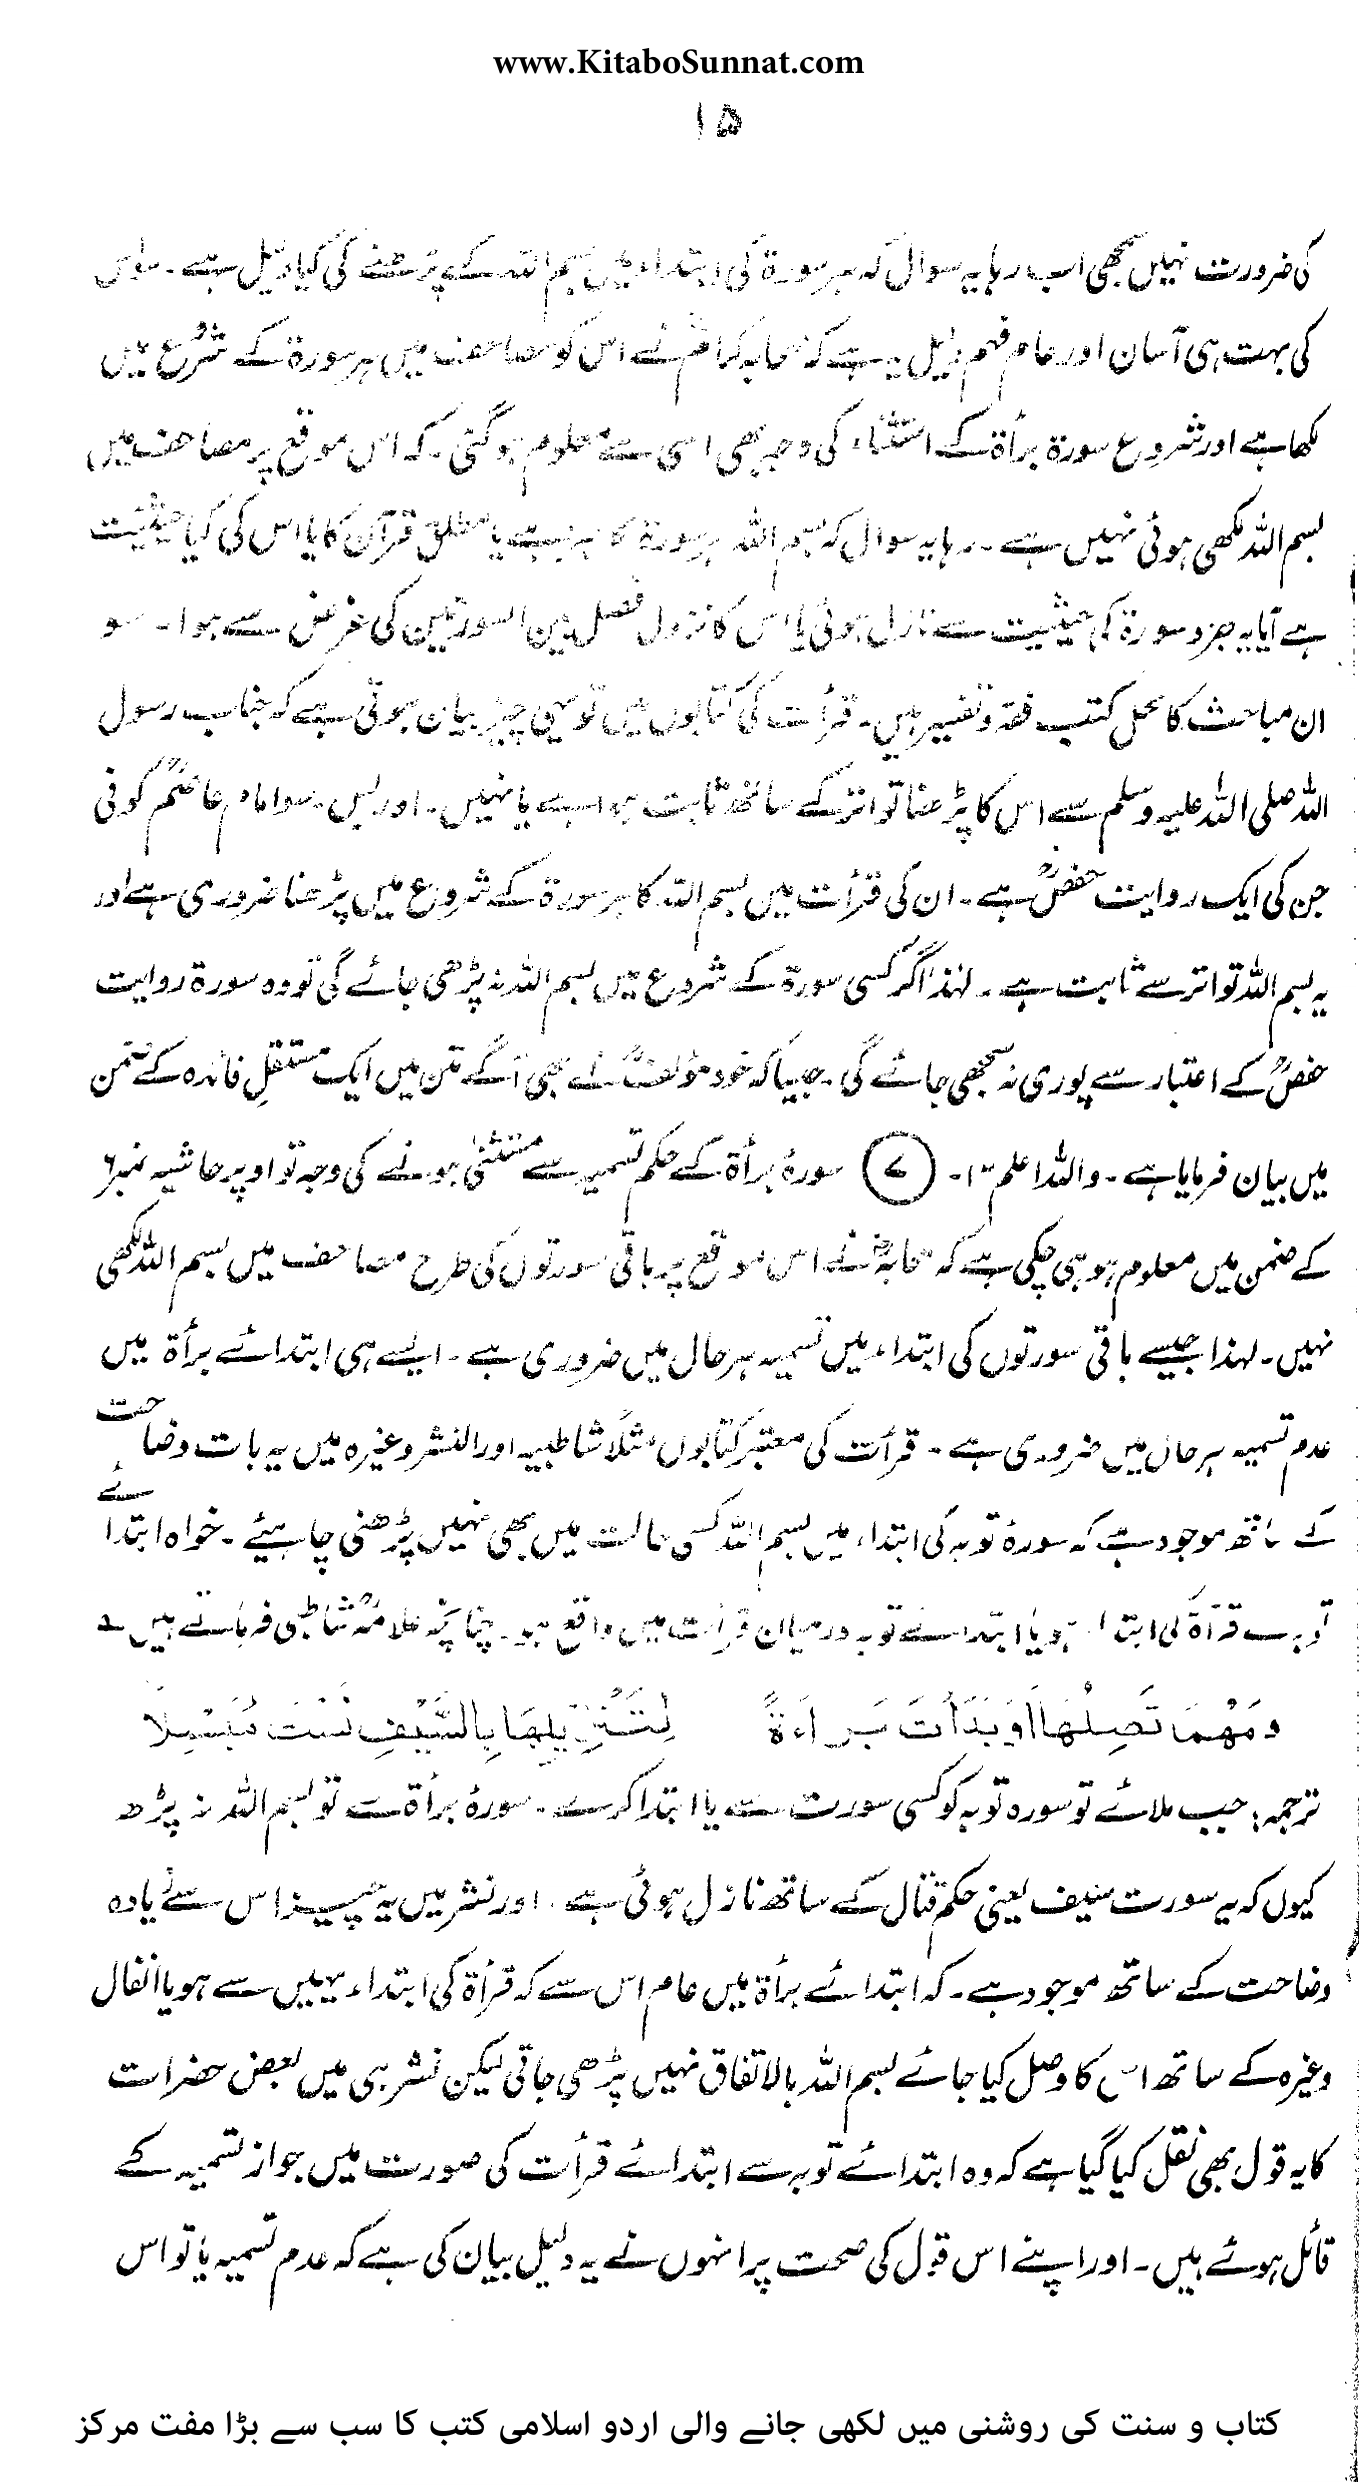 www.KitaboSunnat.com
۱۵
کی ضرورت نہیں سمجھی اب رہا یہ سوال کہ ہر سورۃ کی ابتداء میں بسم اللہ کے پڑھنے کی کیا دلیل ہے۔ سواس
کی بہت ہی آسان اور عام فہم دلیل یہ ہے کہ صحابہ کرامؓ نے اس کو مصاحف میں ہر سورۃ کے شروع میں
لکھا ہے اور شروع سورۃ برأۃ کے استثناء کی وجہ بھی اسی سے معلوم ہو گئی۔ کہ اس موقع پر مصاحف میں
بسم اللہ لکھی ہوئی نہیں ہے۔ رہا یہ سوال کہ بسم اللہ ہر سورۃ کا جز ہے یا مطلق قرآن کا یا اس کی کیا حیثیت
ہے آیا یہ جزو سورۃ کی حیثیت سے نازل ہوئی یا اس کا نزول فصل بین السورتین کی غرض سے ہوا۔ سو
ان مباحث کا محل کتب فقہ و تفسیر ہیں۔ قرأت کی کتابوں میں تو یہی چیز بیان ہوتی ہے کہ جناب رسول
اللہ صلی اللہ علیہ وسلم سے اس کا پڑھنا تواتر کے ساتھ ثابت ہوا ہے یا نہیں۔ اور بس۔ سوا مام عاصمؒ کوفی
جن کی ایک روایت حفصؒ ہے۔ ان کی قرأت میں بسم اللہ کا ہر سورۃ کے شروع میں پڑھنا ضروری ہے اور
یہ بسم اللہ تواتر سے ثابت ہے۔ لہٰذا اگر کسی سورۃ کے شروع میں بسم اللہ نہ پڑھی جائے گی تو وہ سورۃ روایت
حفصؒ کے اعتبار سے پوری نہ سمجھی جائے گی۔ جیسا کہ خود مؤلفؒ نے بھی آگے متن میں ایک مستقل فائدہ کے ضمن
میں بیان فرمایا ہے۔ واللہ اعلم ۱۲۔ ⑦ سورۂ برأۃ کے حکم تسمیہ سے مستثنیٰ ہونے کی وجہ تو اوپر حاشیہ نمبر ۶
کے ضمن میں معلوم ہو ہی چکی ہے کہ صحابہؓ نے اس موقع پر باقی سورتوں کی طرح مصاحف میں بسم اللہ لکھی
نہیں۔ لہذا جیسے باقی سورتوں کی ابتداء میں تسمیہ ہر حال میں ضروری ہے۔ ایسے ہی ابتدائے برأۃ میں
عدم تسمیہ ہر حال میں ضروری ہے۔ قرأت کی معتبر کتابوں مثلاً شاطبیہ اور النشر وغیرہ میں یہ بات وضاحت
کے ساتھ موجود ہے کہ سورۂ توبہ کی ابتداء میں بسم اللہ کسی حالت میں بھی نہیں پڑھنی چاہیئے۔ خواہ ابتدائے
توبہ سے قرأۃ کی ابتداء ہو یا ابتدائے توبہ درمیان قرأت میں واقع ہو۔ چنانچہ علامہ شاطبیؒ فرماتے ہیں ؎
وَمَهْمَا تَصِلْهَا أَوْ بَدَأْتَ بَرَاءَةً لِتَنْزِيلِهَا بِالسَّيْفِ لَسْتَ مُبَسْمِلَا
ترجمہ: جب ملائے تو سورہ توبہ کو کسی سورت سے یا ابتدا کرے۔ سورۂ برأۃ سے تو بسم اللہ نہ پڑھ
کیوں کہ یہ سورت سیف یعنی حکم قتال کے ساتھ نازل ہوئی ہے۔ اور نشر میں یہ چیز اس سے زیادہ
وضاحت کے ساتھ موجود ہے۔ کہ ابتدائے برأۃ میں عام اس سے کہ قرأۃ کی ابتداء یہیں سے ہو یا انفال
وغیرہ کے ساتھ اس کا وصل کیا جائے بسم اللہ بالاتفاق نہیں پڑھی جاتی لیکن نشر ہی میں بعض حضرات
کا یہ قول بھی نقل کیا گیا ہے کہ وہ ابتدائے توبہ سے ابتدائے قرأت کی صورت میں جواز تسمیہ کے
قائل ہوئے ہیں۔ اور اپنے اس قول کی صحت پر انہوں نے یہ دلیل بیان کی ہے کہ عدم تسمیہ یا تو اس
کتاب و سنت کی روشنی میں لکھی جانے والی اردو اسلامی کتب کا سب سے بڑا مفت مرکز